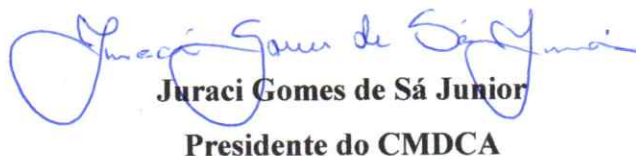 Juraci Gomes de Sá Junior
Juraci Gomes de Sá Junior
Presidente do CMDCA